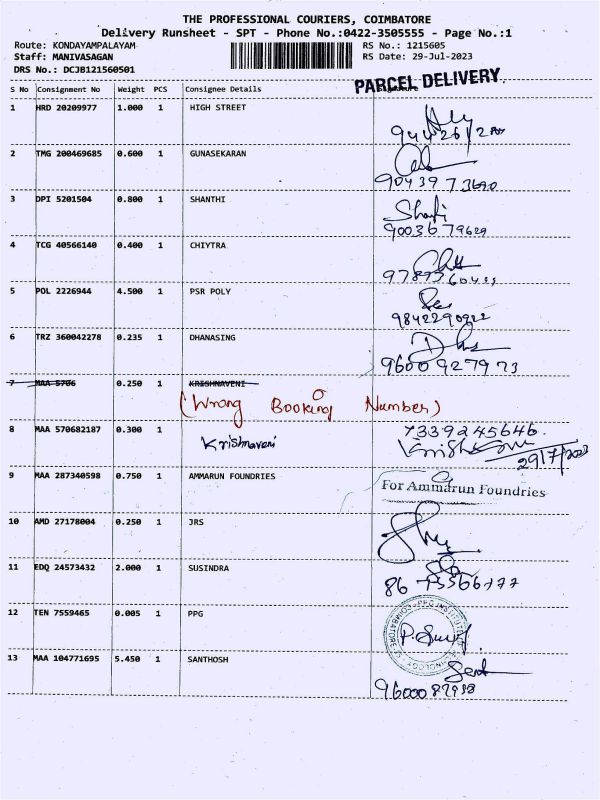 THE PROFESSIONAL COURIERS, COIMBATORE
Delivery Runsheet - SPT - Phone No.:0422-3505555 - Page No.:1
Route: KONDAYAMPALAYAM RS No.: 1215605
Staff: MANIVASAGAN RS Date: 29-Jul-2023
DRS No.: DCJB121560501
PARCEL DELIVERY
S No Consignment No Weight PCS Consignee Details Signature
1 HRD 20209977 1.000 1 HIGH STREET
2 TMG 200469685 0.600 1 GUNASEKARAN
3 DPI 5201504 0.800 1 SHANTHI
Shanti
9003679629
4 TCG 40566140 0.400 1 CHIYTRA
5 POL 2226944 4.500 1 PSR POLY
6 TRZ 360042278 0.235 1 DHANASING
9600927973
7 MAA 5706 0.250 1 KRISHNAVENI
(Wrong Booking Number)
8 MAA 570682187 0.300 1 Krishnaveni
7339245646
29/7/2023
9 MAA 287340598 0.750 1 AMMARUN FOUNDRIES
For Ammarun Foundries
10 AMD 27178004 0.250 1 JRS
11 EDQ 24573432 2.000 1 SUSINDRA
12 TEN 7559465 0.005 1 PPG
13 MAA 104771695 5.450 1 SANTHOSH